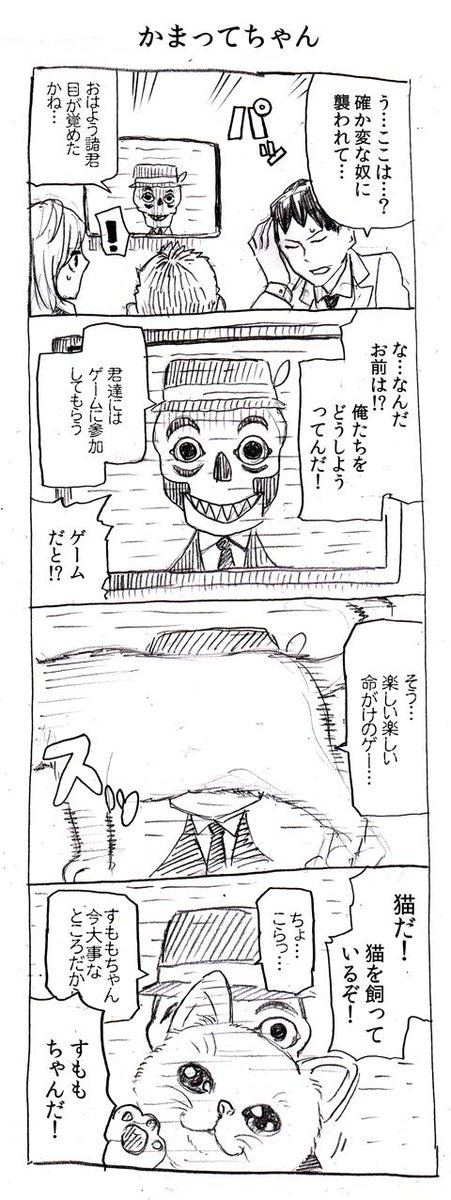 かまってちゃん
う…ここは…?
確か変な奴に
襲われて…
パッ
おはよう諸君
目が覚めた
かね…
!
な…なんだ
お前は!?
俺たちを
どうしよう
ってんだ!
君達には
ゲームに参加
してもらう
ゲーム
だと!?
そう…
楽しい楽しい
命がけのゲー…
スッ
猫だ!
猫を飼って
いるぞ!
ちょ…
こらっ…
すももちゃん
今大事な
ところだから
すもも
ちゃんだ!